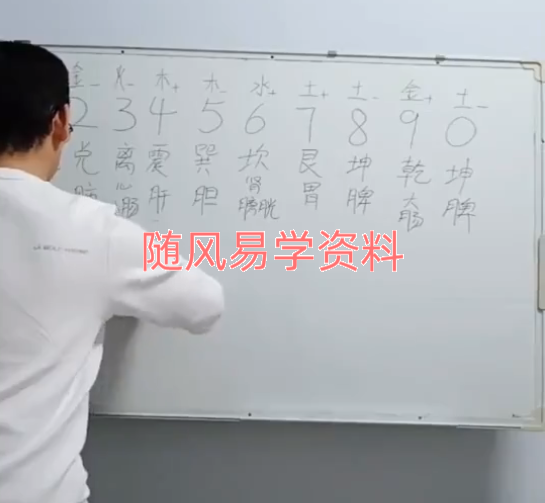 金- 火- 木+ 木- 水+ 土+ 土- 金+ 土-
2 3 4 5 6 7 8 9 0
兑 离 震 巽 坎 艮 坤 乾 坤
肺 心 肝 胆 肾 胃 脾 大 脾
小肠 膀胱 肠
随风易学资料